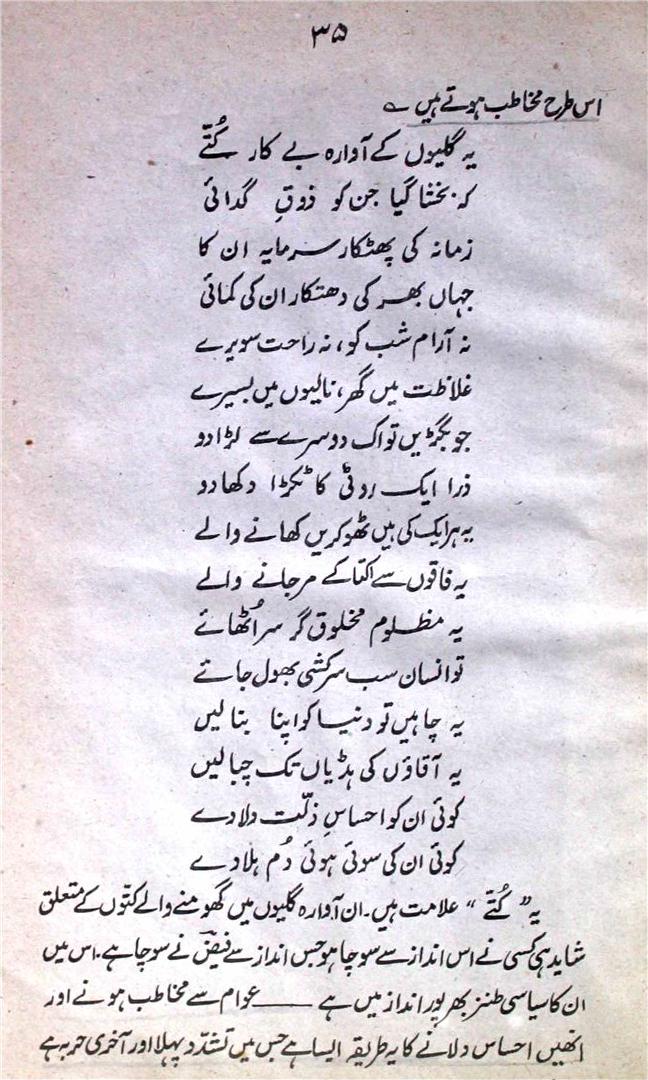 ۳۵
اس طرح مخاطب ہوتے ہیں ے
یہ گلیوں کے آوارہ بے کار کُتّے
کہ بخشا گیا جن کو ذوقِ گدائی
زمانہ کی پھٹکار سرمایہ ان کا
جہاں بھر کی دھتکار ان کی کمائی
نہ آرام شب کو، نہ راحت سویرے
غلاظت میں گھر، نالیوں میں بسیرے
جو بگڑیں تو اک دوسرے سے لڑا دو
ذرا ایک روٹی کا ٹکڑا دکھا دو
یہ ہر ایک کی ہیں ٹھوکریں کھانے والے
یہ فاقوں سے اکتا کے مر جانے والے
یہ مظلوم مخلوق گر سر اُٹھائے
تو انسان سب سرکشی بھول جائے
یہ چاہیں تو دنیا کو اپنا بنا لیں
یہ آقاؤں کی ہڈیاں تک چبا لیں
کوئی ان کو احساسِ ذلّت دلا دے
کوئی ان کی سوئی ہوئی دُم ہلا دے
یہ ”کُتّے“ علامت ہیں۔ ان آوارہ گلیوں میں گھومنے والے کتّوں کے متعلق
شاید ہی کسی نے اس انداز سے سوچا ہو جس انداز سے فیضؔ نے سوچا ہے۔ اس میں
ان کا سیاسی طنز بھرپور انداز میں ہے —— عوام سے مخاطب ہونے اور
انھیں احساس دلانے کا یہ طریقہ ایسا ہے جس میں تشدّد پہلا اور آخری حربہ ہے